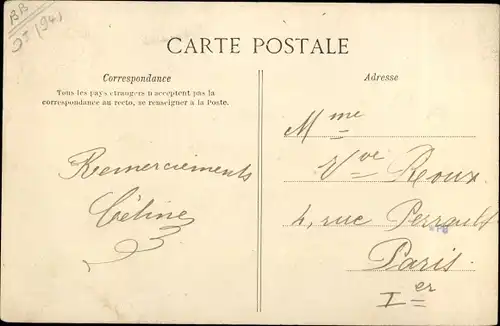 BB
CARTE POSTALE
Correspondance
Tous les pays étrangers n'acceptent pas la
correspondance au recto, se renseigner à la Poste.
Remerciements
Céline
Adresse
Mme
Vve Roux
4, rue Perrault
Paris
Ier